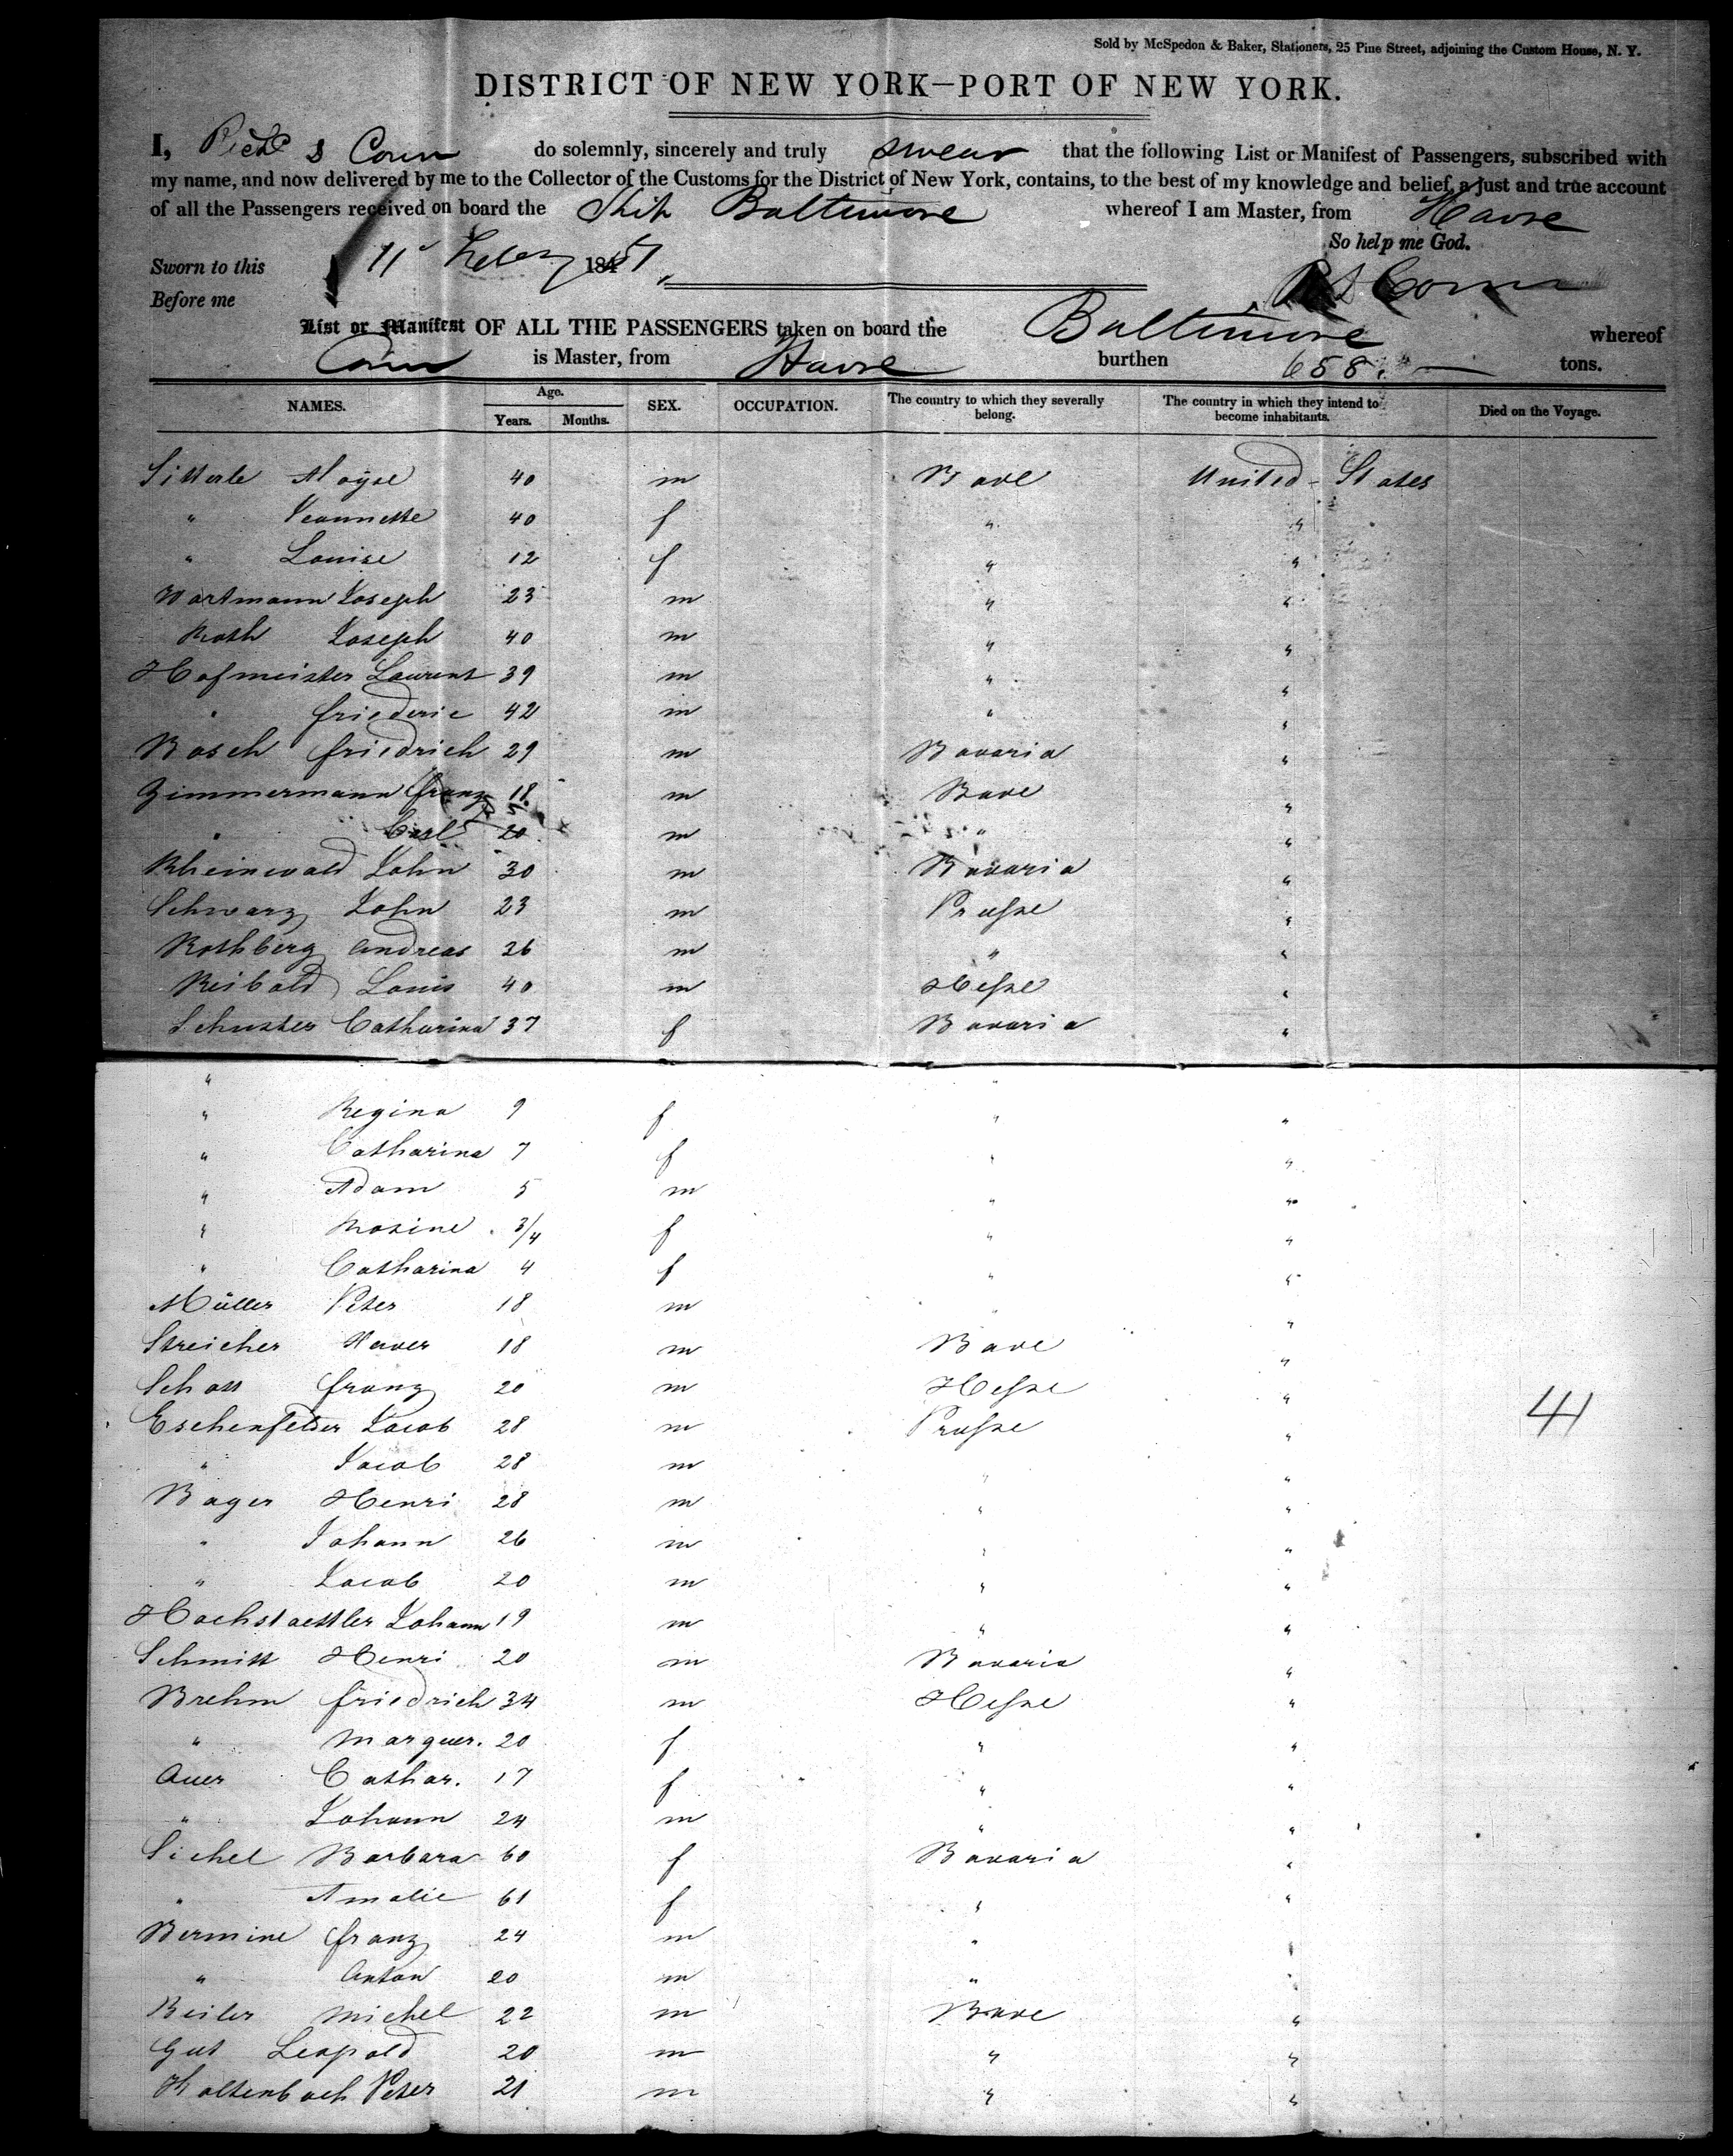 Sold by McSpedon & Baker, Stationers, 25 Pine Street, adjoining the Custom House, N. Y.
DISTRICT OF NEW YORK—PORT OF NEW YORK.
I, Richd S Conn do solemnly, sincerely and truly swear that the following List or Manifest of Passengers, subscribed with
my name, and now delivered by me to the Collector of the Customs for the District of New York, contains, to the best of my knowledge and belief, a just and true account
of all the Passengers received on board the Ship Baltimore whereof I am Master, from Havre
So help me God.
Sworn to this 11 1851
Before me
List or Manifest OF ALL THE PASSENGERS taken on board the Baltimore whereof
Conn is Master, from Havre burthen 658 tons.
NAMES. Age. Years. Months. SEX. OCCUPATION. The country to which they severally belong. The country in which they intend to become inhabitants. Died on the Voyage.
Sitterle Aloyse 40 m Bade United States
" Jeannette 40 f " "
" Louise 12 f " "
Wortmann Joseph 23 m " "
Roth Joseph 40 m " "
Hofmeister Laurent 39 m " "
" friederic 42 m " "
Bosch friedrich 29 m Bavaria "
Zimmermann franz 18 m Bade "
" Carl 20 m " "
Rheinwald John 30 m Bavaria "
Schwarz John 23 m Prusse "
Rothberg Andreas 26 m " "
Reibold Louis 40 m Hesse "
Schuster Catharina 37 f Bavaria "
" "
" Regina 9 f " "
" Catharina 7 f " "
" Adam 5 m " "
" Rosine 3/4 f " "
" Catharina 4 f " "
Müller Peter 18 m " "
Streicher Xaver 18 m Bade "
Schott franz 20 m Hesse "
Eschenfelder Jacob 28 m Prusse " 41
" Jacob 28 m " "
Bager Henri 28 m " "
" Johann 26 m " "
" Jacob 20 m " "
Hochstaettler Johann 19 m " "
Schmitt Henri 20 m Bavaria "
Brehm friedrich 34 m Hesse "
" Marguer. 20 f " "
Auer Cathar. 17 f " "
" Johann 24 m " "
Sichel Barbara 60 f Bavaria "
" Amalie 61 f " "
Bermine franz 24 m " "
" Anton 20 m " "
Beiler Michel 22 m Bade "
Gut Leopold 20 m " "
Holtenbach Peter 21 m " "